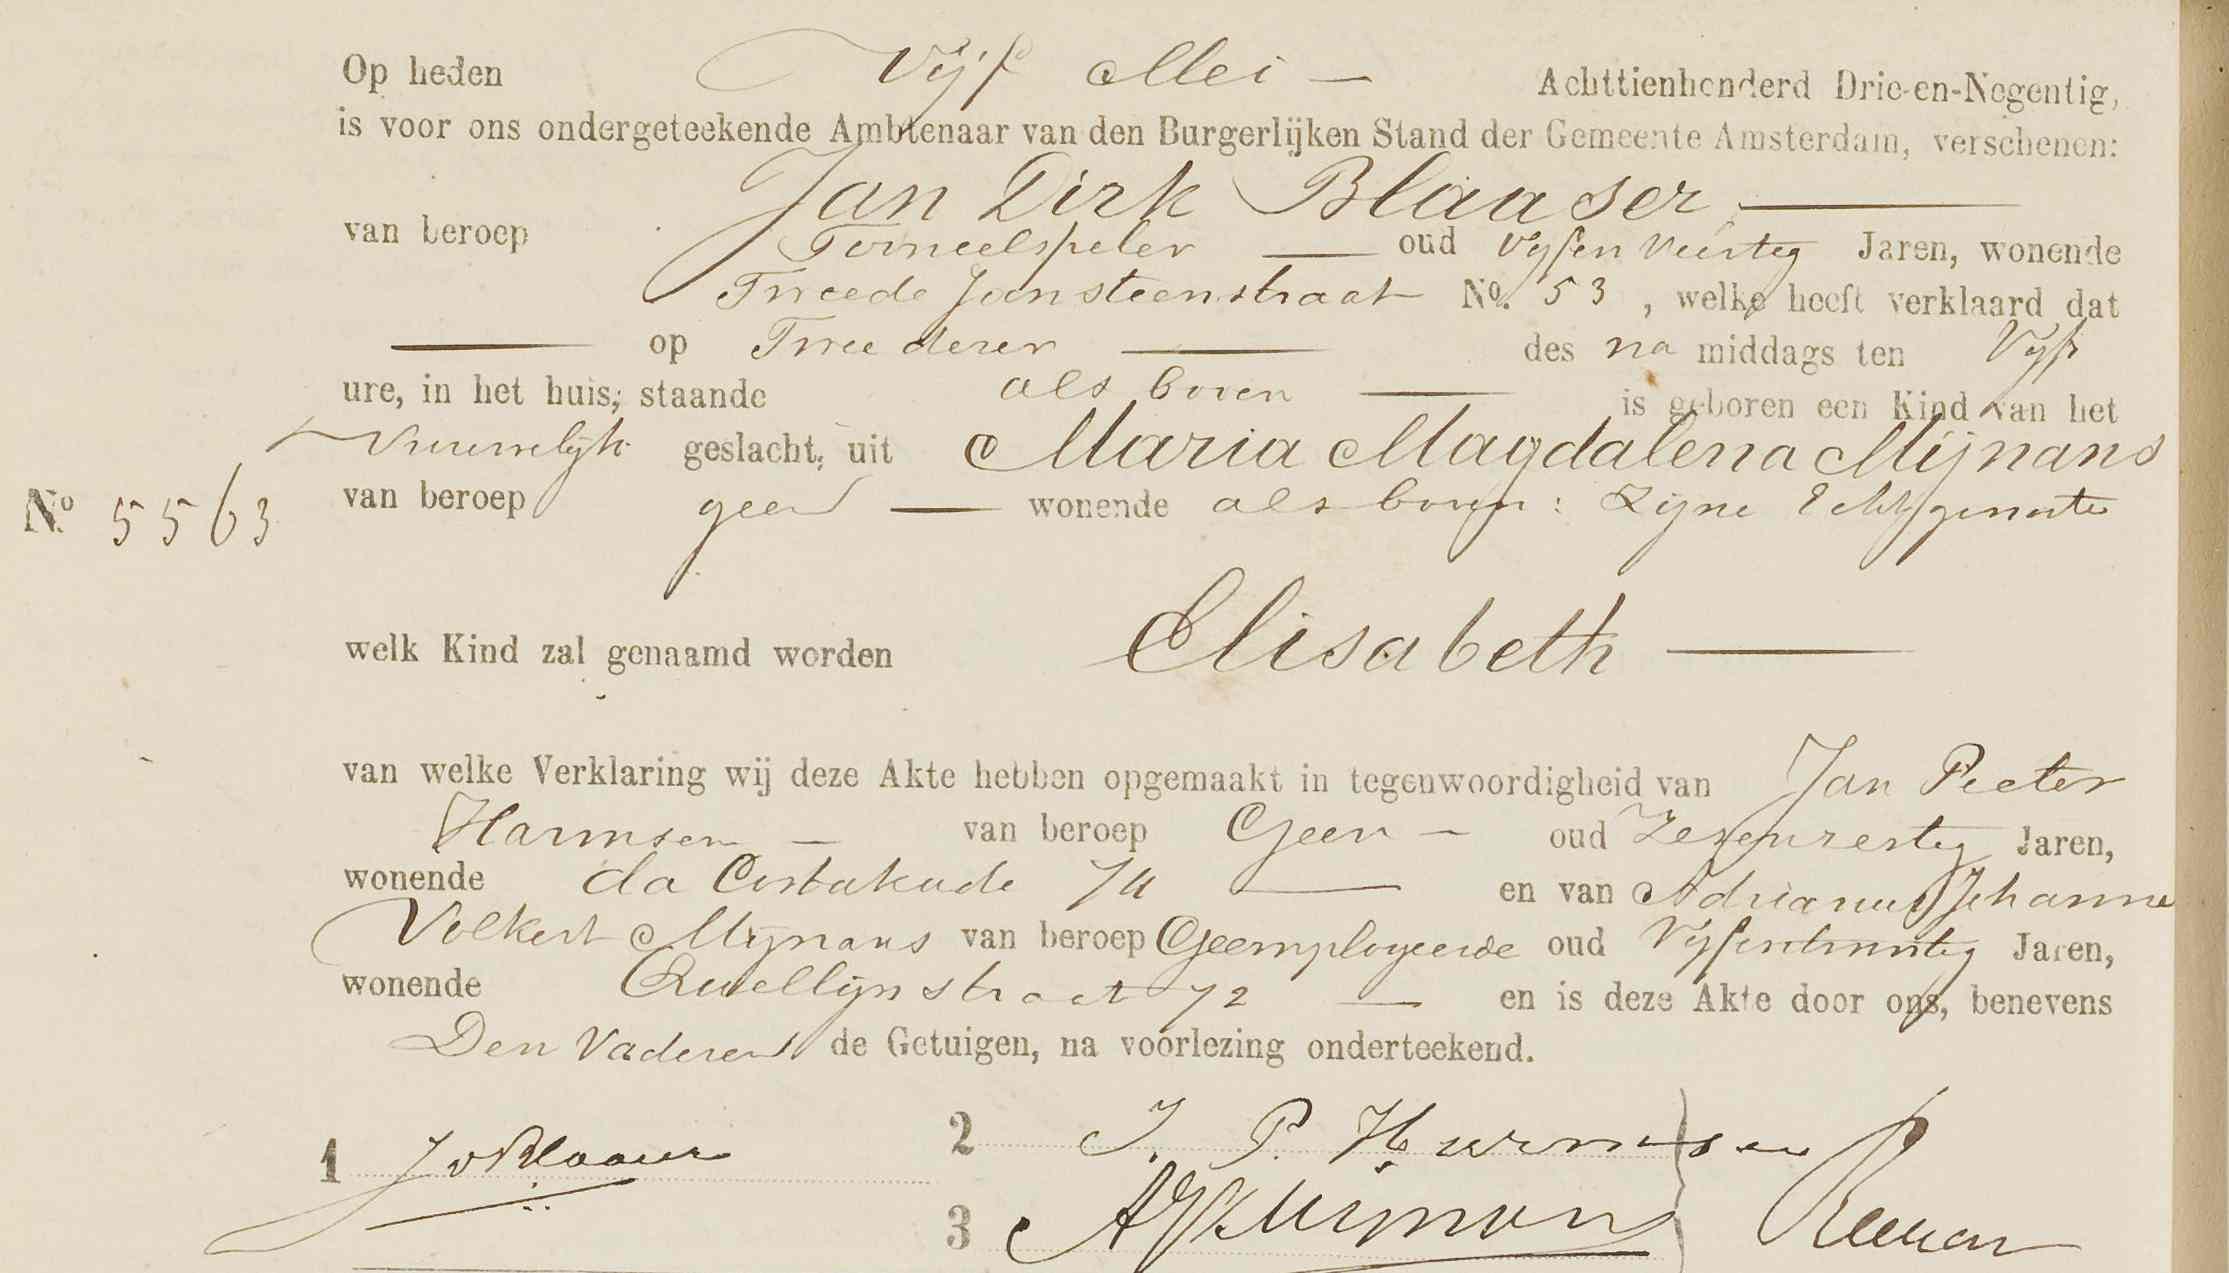 Op heden Vijf Mei — Achttienhonderd Drie-en-Negentig,
is voor ons ondergeteekende Ambtenaar van den Burgerlijken Stand der Gemeente Amsterdam, verschenen:
Jan Dirk Blaaser —
van beroep Tooneelspeler — oud Vijfen Veertig Jaren, wonende
Tweede Jan steenstraat No. 53, welke heeft verklaard dat
— op Twee dezer — des na middags ten Vijf
ure, in het huis, staande als boven — is geboren een Kind van het
Vrouwelijk geslacht, uit Maria Magdalena Mijnans
No 5563 van beroep geen — wonende als boven: Zijne Echtgenoote
welk Kind zal genaamd worden Elisabeth —
van welke Verklaring wij deze Akte hebben opgemaakt in tegenwoordigheid van Jan Pieter
Harmsen — van beroep Geen — oud Zesenzestig Jaren,
wonende da Costakade 74 — en van Adrianus Johannes
Volkert Mijnans van beroep Geemployeerde oud Vijfentwintig Jaren,
wonende Quellijnstraat 72 — en is deze Akte door ons, benevens
Den Vader en de Getuigen, na voorlezing onderteekend.
1 JDBlaaser 2 J. P. Harmsen
3 AJVMijnans